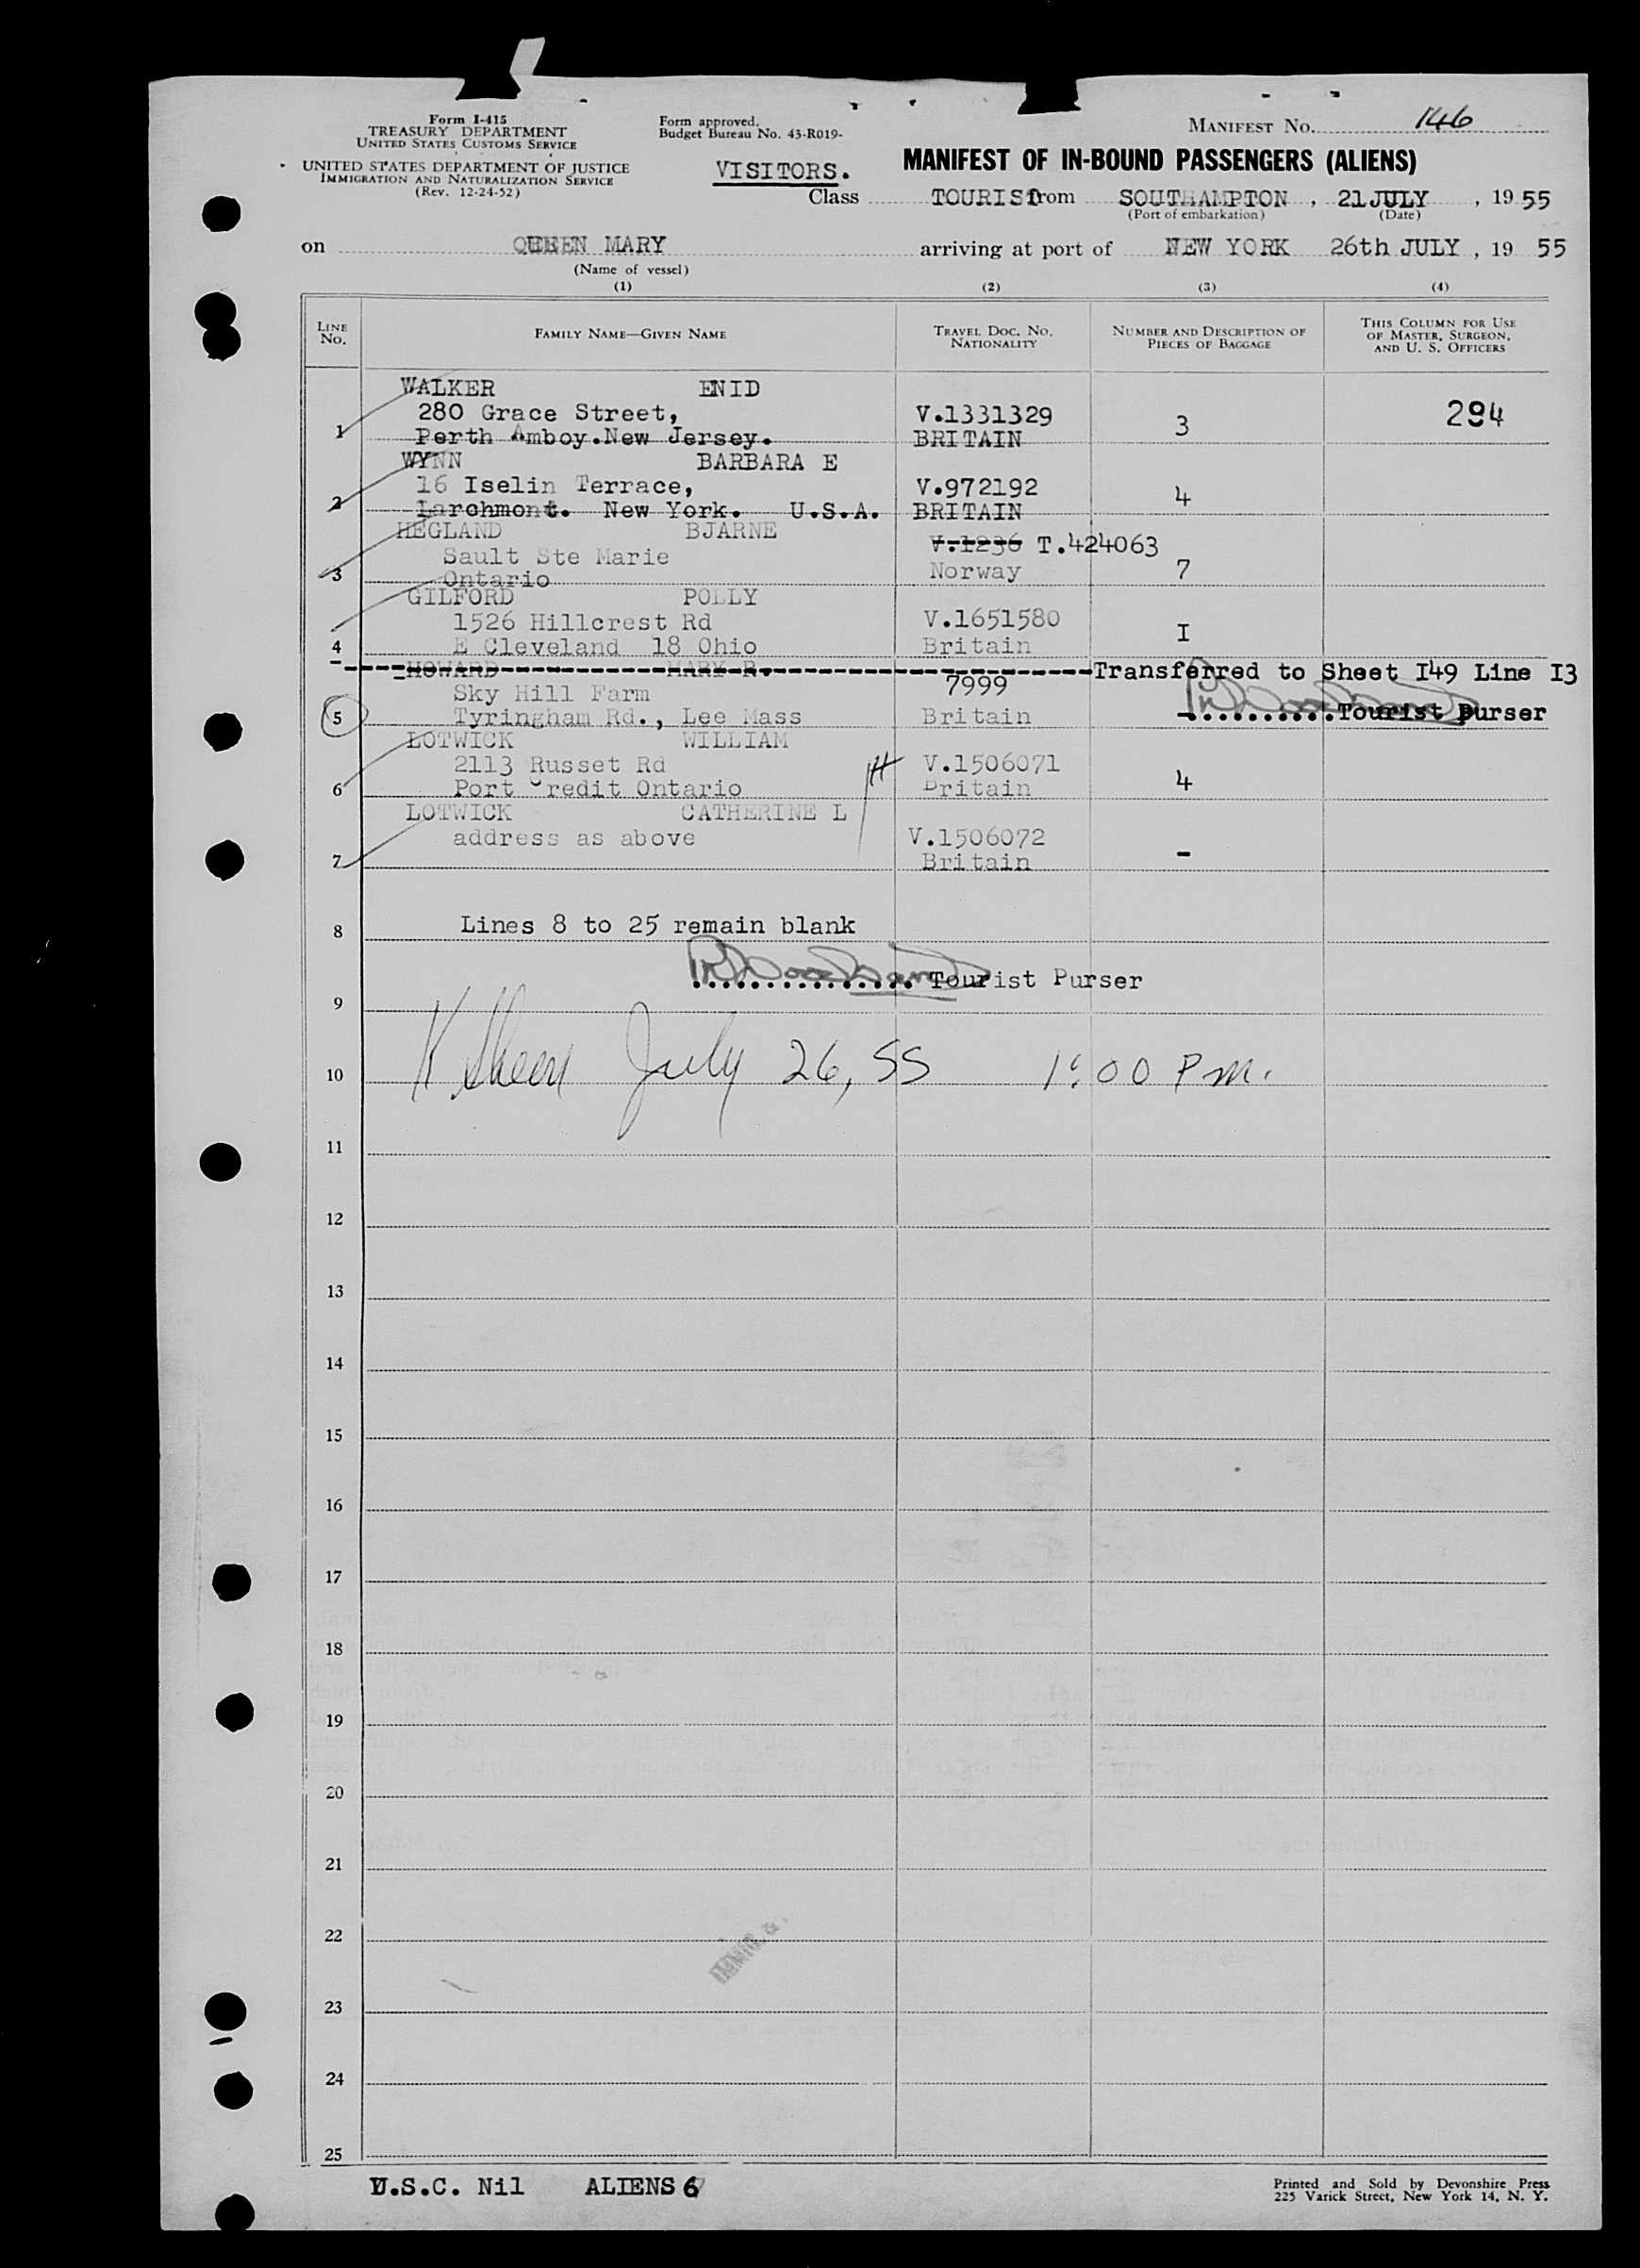 Form I-415
TREASURY DEPARTMENT
UNITED STATES CUSTOMS SERVICE
UNITED STATES DEPARTMENT OF JUSTICE
IMMIGRATION AND NATURALIZATION SERVICE
(Rev. 12-24-52)
Form approved.
Budget Bureau No. 43-R019-
MANIFEST No. 146
VISITORS.
MANIFEST OF IN-BOUND PASSENGERS (ALIENS)
Class TOURIST from SOUTHAMPTON , 21 JULY , 19 55
(Port of embarkation) (Date)
on QUEEN MARY arriving at port of NEW YORK 26th JULY , 19 55
(Name of vessel)
(1) (2) (3) (4)
LINE No. FAMILY NAME—GIVEN NAME TRAVEL DOC. No. NATIONALITY NUMBER AND DESCRIPTION OF PIECES OF BAGGAGE THIS COLUMN FOR USE OF MASTER, SURGEON, AND U. S. OFFICERS
WALKER ENID
280 Grace Street, V.1331329 294
1 Perth Amboy.New Jersey. BRITAIN 3
WYNN BARBARA E
16 Iselin Terrace, V.972192
2 Larchmont. New York. U.S.A. BRITAIN 4
HEGLAND BJARNE
Sault Ste Marie V.1236 T.424063
3 Ontario Norway 7
GILFORD POLLY
1526 Hillcrest Rd V.1651580
4 E Cleveland 18 Ohio Britain I
HOWARD MARY R. Transferred to Sheet I49 Line I3
Sky Hill Farm 7999
5 Tyringham Rd., Lee Mass Britain - Tourist Purser
LOTWICK WILLIAM
2113 Russet Rd V.1506071
6 Port Credit Ontario Britain 4
LOTWICK CATHERINE L
address as above V.1506072
7 Britain -
8 Lines 8 to 25 remain blank
Tourist Purser
9
10 July 26, 55 1:00 P.m.
11
12
13
14
15
16
17
18
19
20
21
22
23
24
25
U.S.C. Nil ALIENS 6
Printed and Sold by Devonshire Press
225 Varick Street, New York 14, N. Y.